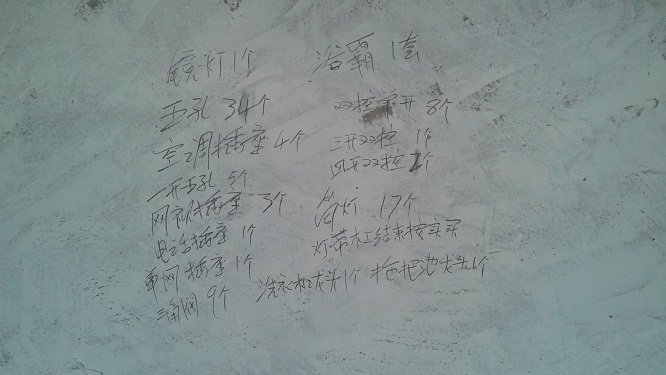 镜灯1个 浴霸1套
五孔 34个 双控单开 8个
空调插座 4个 三开双控 1个
一开五孔 5个 四开双控 2个
网视插座 3个 筒灯 17个
电话插座 1个 灯带木工结束按实买
单网插座 1个
三角阀 9个 洗衣机龙头1个 拖把池龙头1个